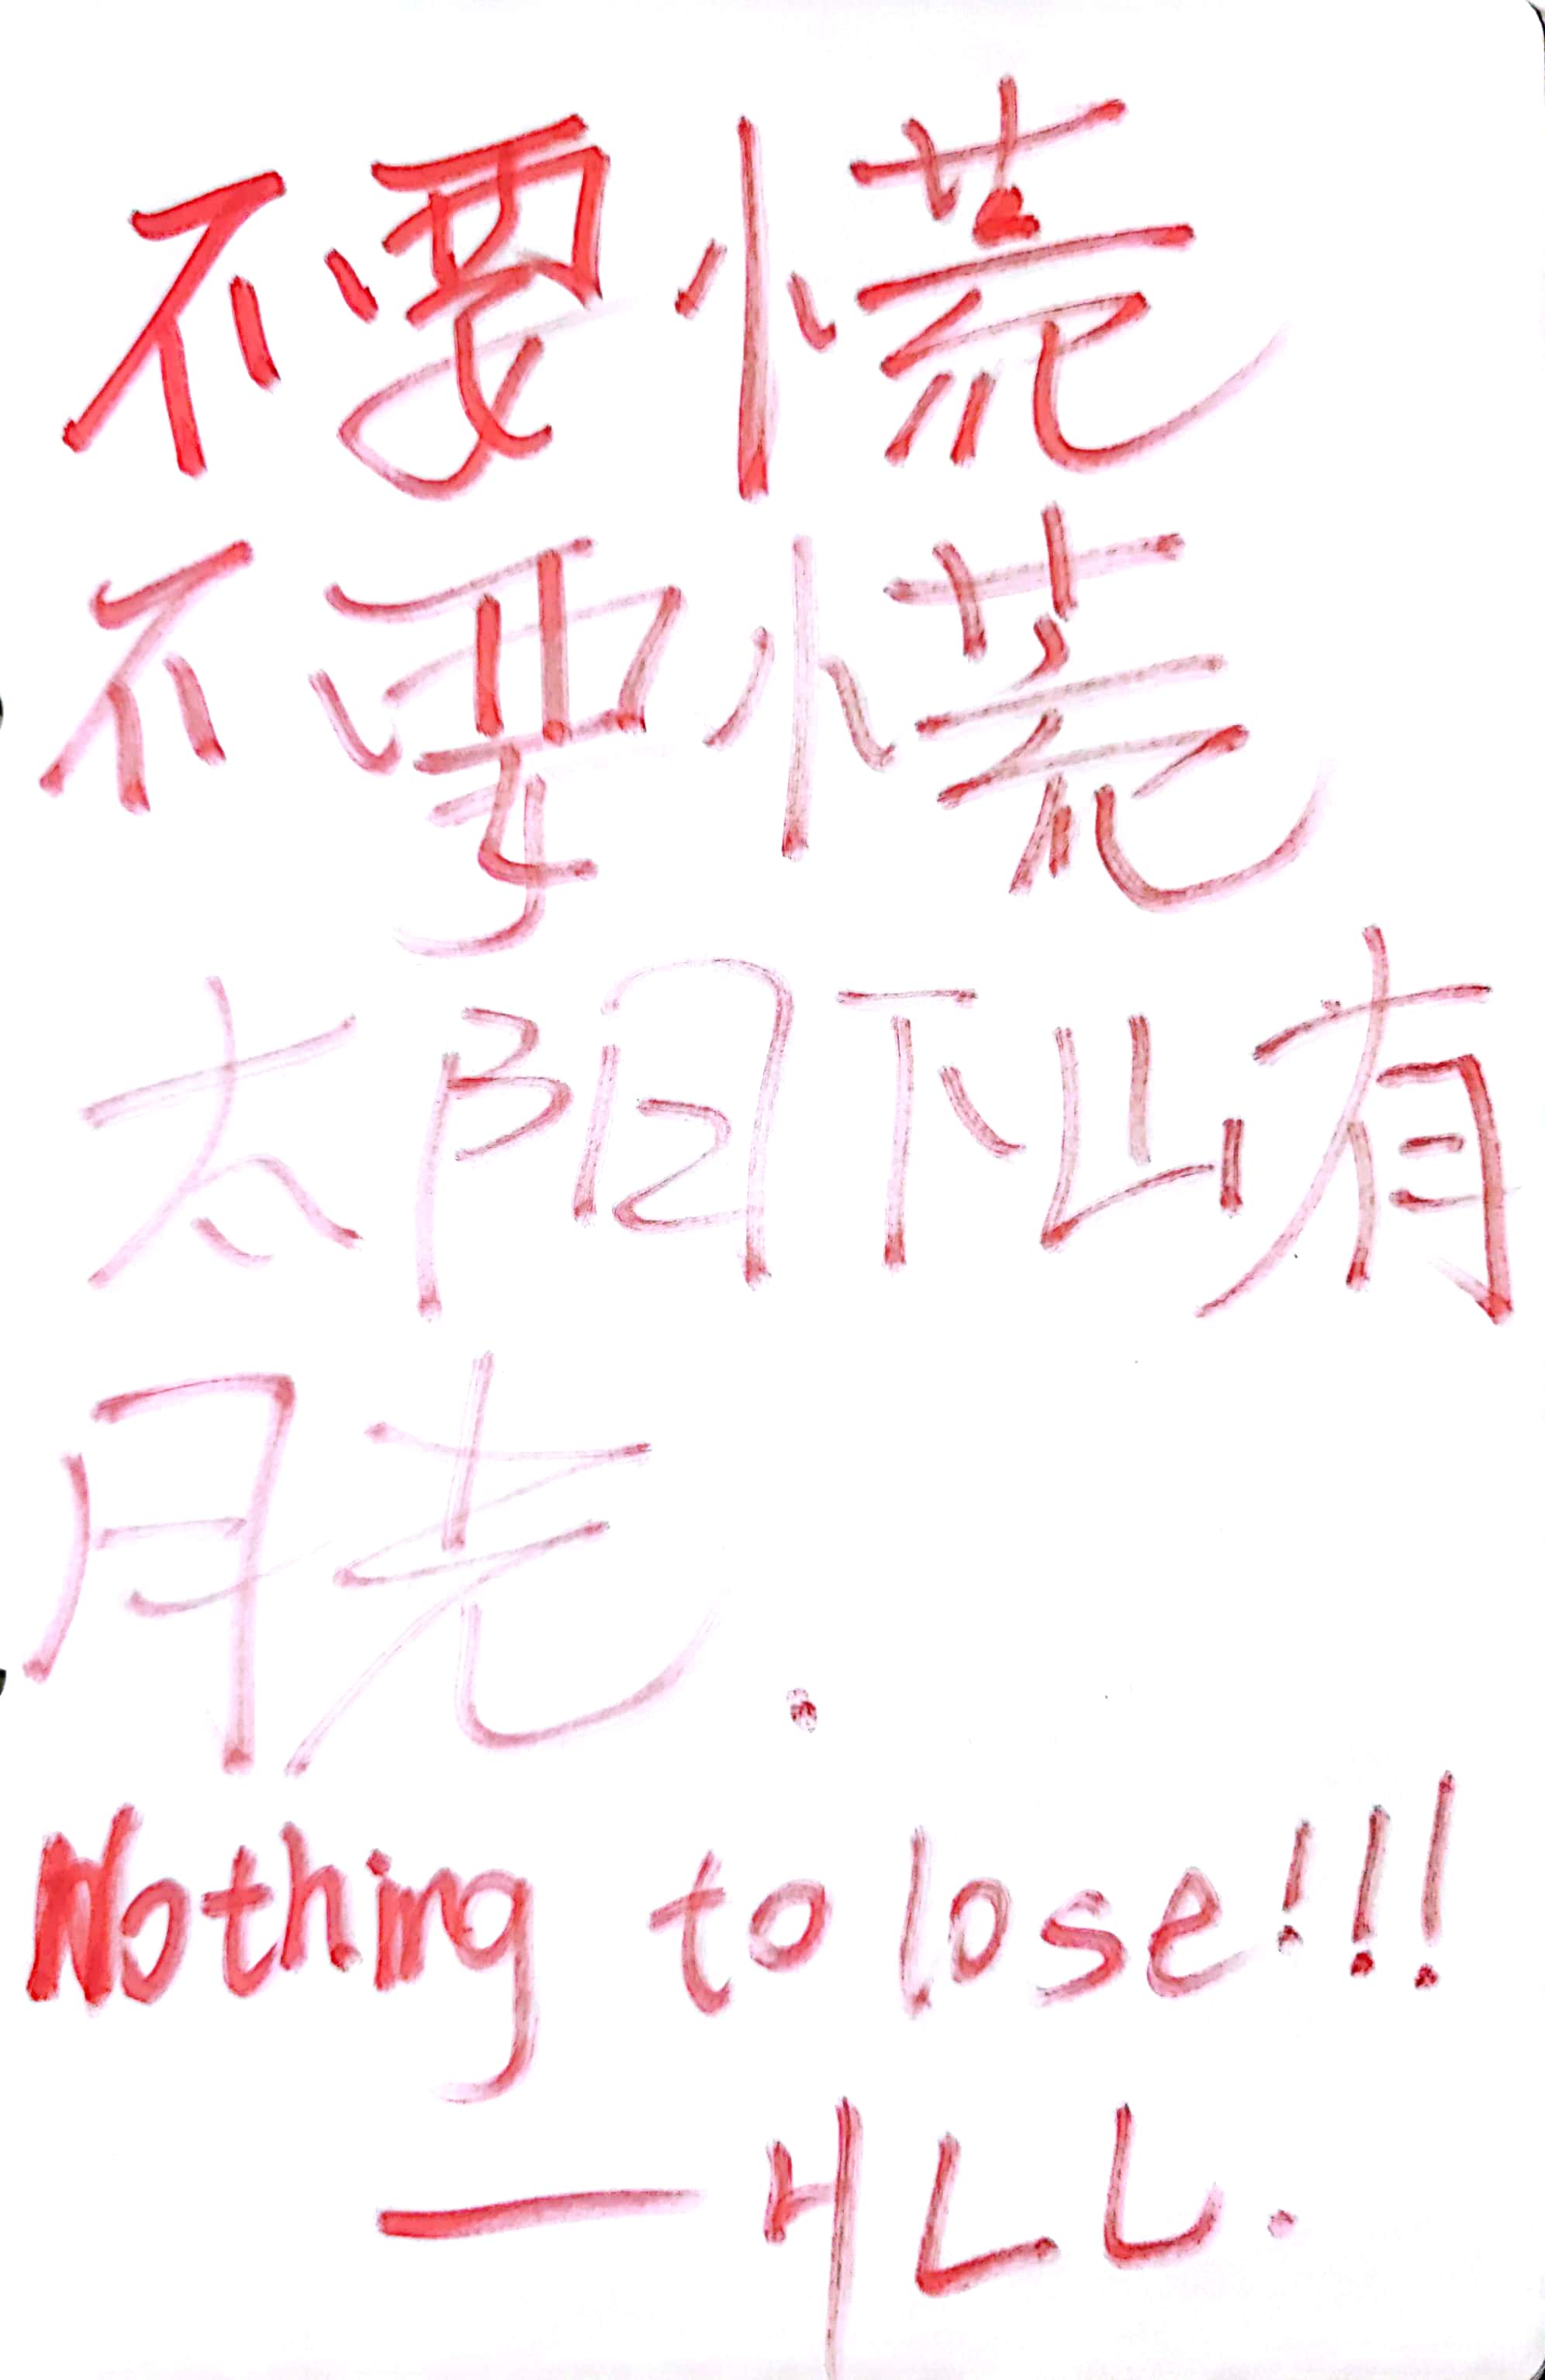 不要慌
不要慌
太阳下山有
月老.
Nothing to lose!!!
—HLL.